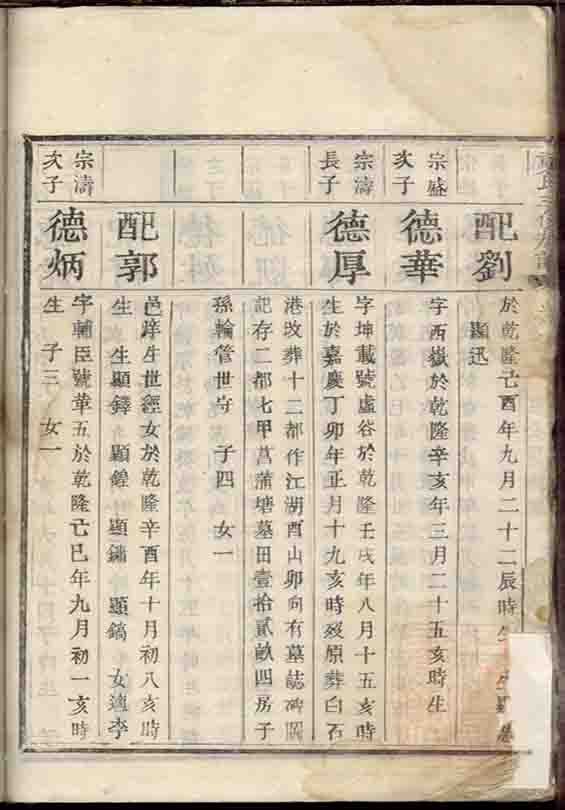 配劉
於乾隆己酉年九月二十二辰時生
顯迅
宗盛
次子
德華
字西嶽於乾隆辛亥年三月二十五亥時生
宗濤
長子
德厚
字坤載號虛谷於乾隆壬戌年八月十五亥時
生於嘉慶丁卯年正月十九亥時歿原葬白石
港改葬十二都作江湖酉山卯向有墓誌碑
記存二都七甲菖蒲塘墓田壹拾貳畝四房子
孫輪管世守 子四 女一
配郭
邑庠生世經女於乾隆辛酉年十月初八亥時
生 生顯鐸 顯鍠 顯鏞 顯鎬 女適李
宗濤
次子
德炳
字輔臣號華五於乾隆己巳年九月初一亥時
生 子三 女一